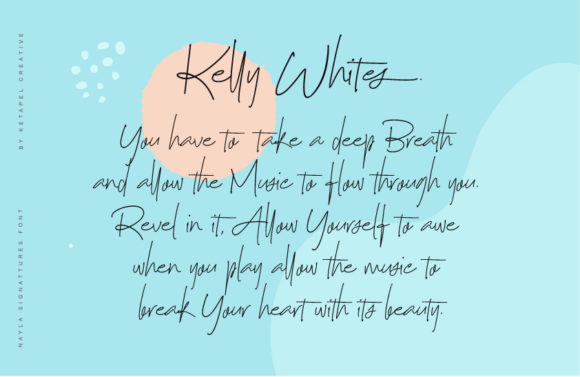 BY KETAPEL CREATIVE
NAYLA SIGNATTURES FONT
Kelly Whites.
You have to take a deep Breath
and allow the Music to flow through you.
Revel in it, Allow Yourself to awe
when you play allow the music to
break Your heart with its beauty.